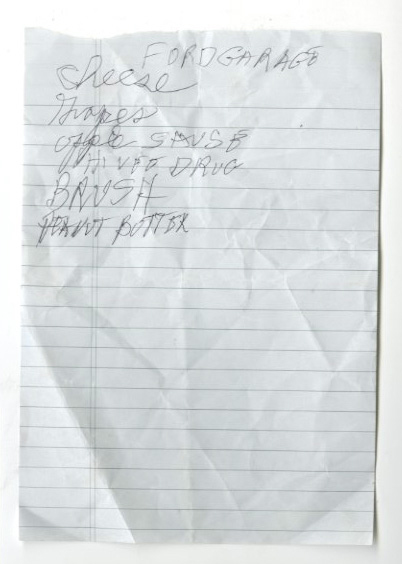 FORD GARAGE
cheese
Grapes
apple SAUSE
HI VEE DRUG
BRUSH
PEANUT BUTTER